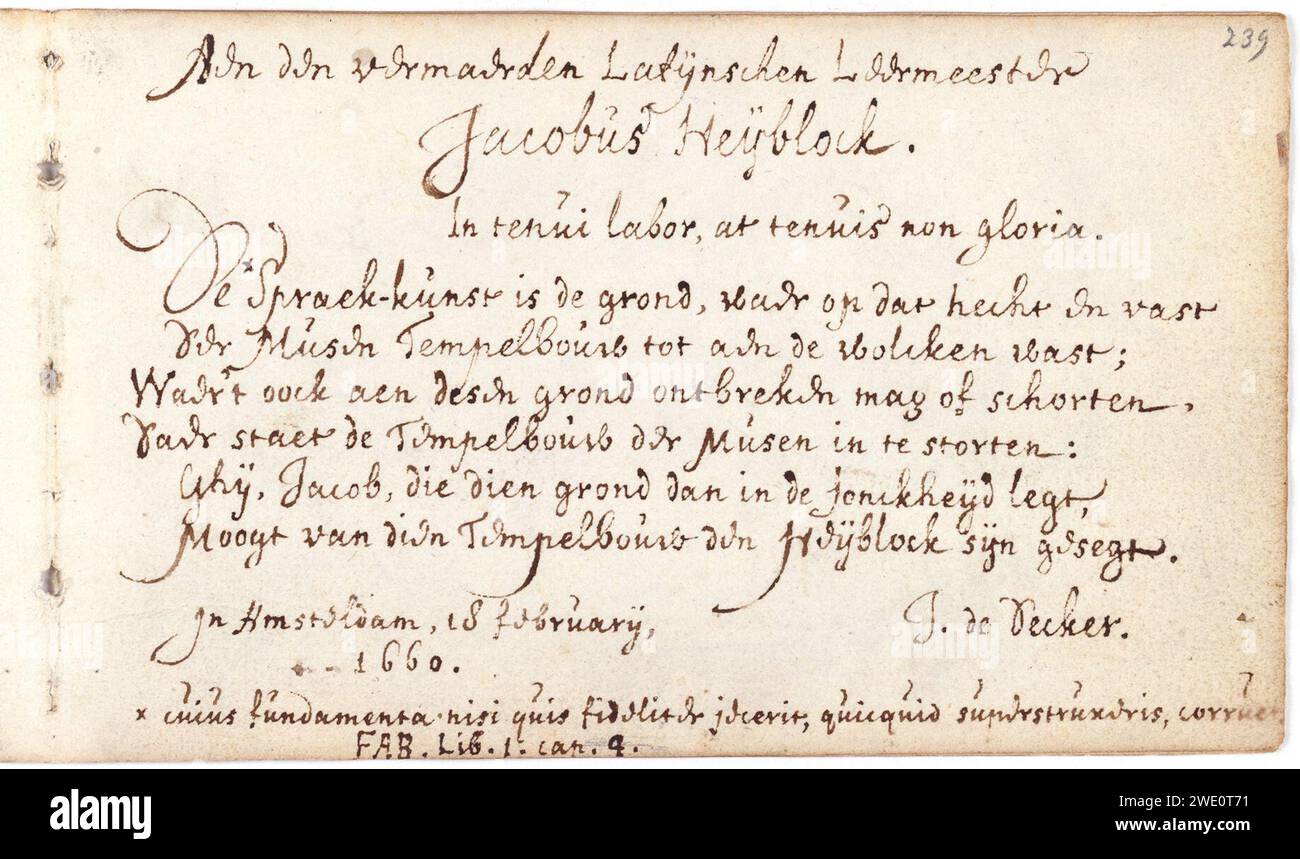 239
Aen den vermaerden Latÿnschen Leermeester
Jacobus Heÿblock.
In tenui labor, at tenuis non gloria.
De ˣSpraek-kunst is de grond, waer op dat hecht en vast
Der Musen Tempelbouw tot aen de wolcken wast;
Waer't oock aen desen grond ontbreken mag of schorten,
Daer staet de Tempelbouw der Musen in te storten:
Ghÿ, Jacob, die dien grond dan in de Jonckheÿd legt,
Moogt van dien Tempelbouw den Heÿblock sÿn gesegt.
In Amsteldam, 18 februarÿ, J. de Decker.
1660.
x cuius fundamenta nisi quis fideliter jecerit, quicquid superstruxeris, corruet
FAB. Lib. 1. cap. 4.
alamy
Image ID: 2WE0T71
www.alamy.com